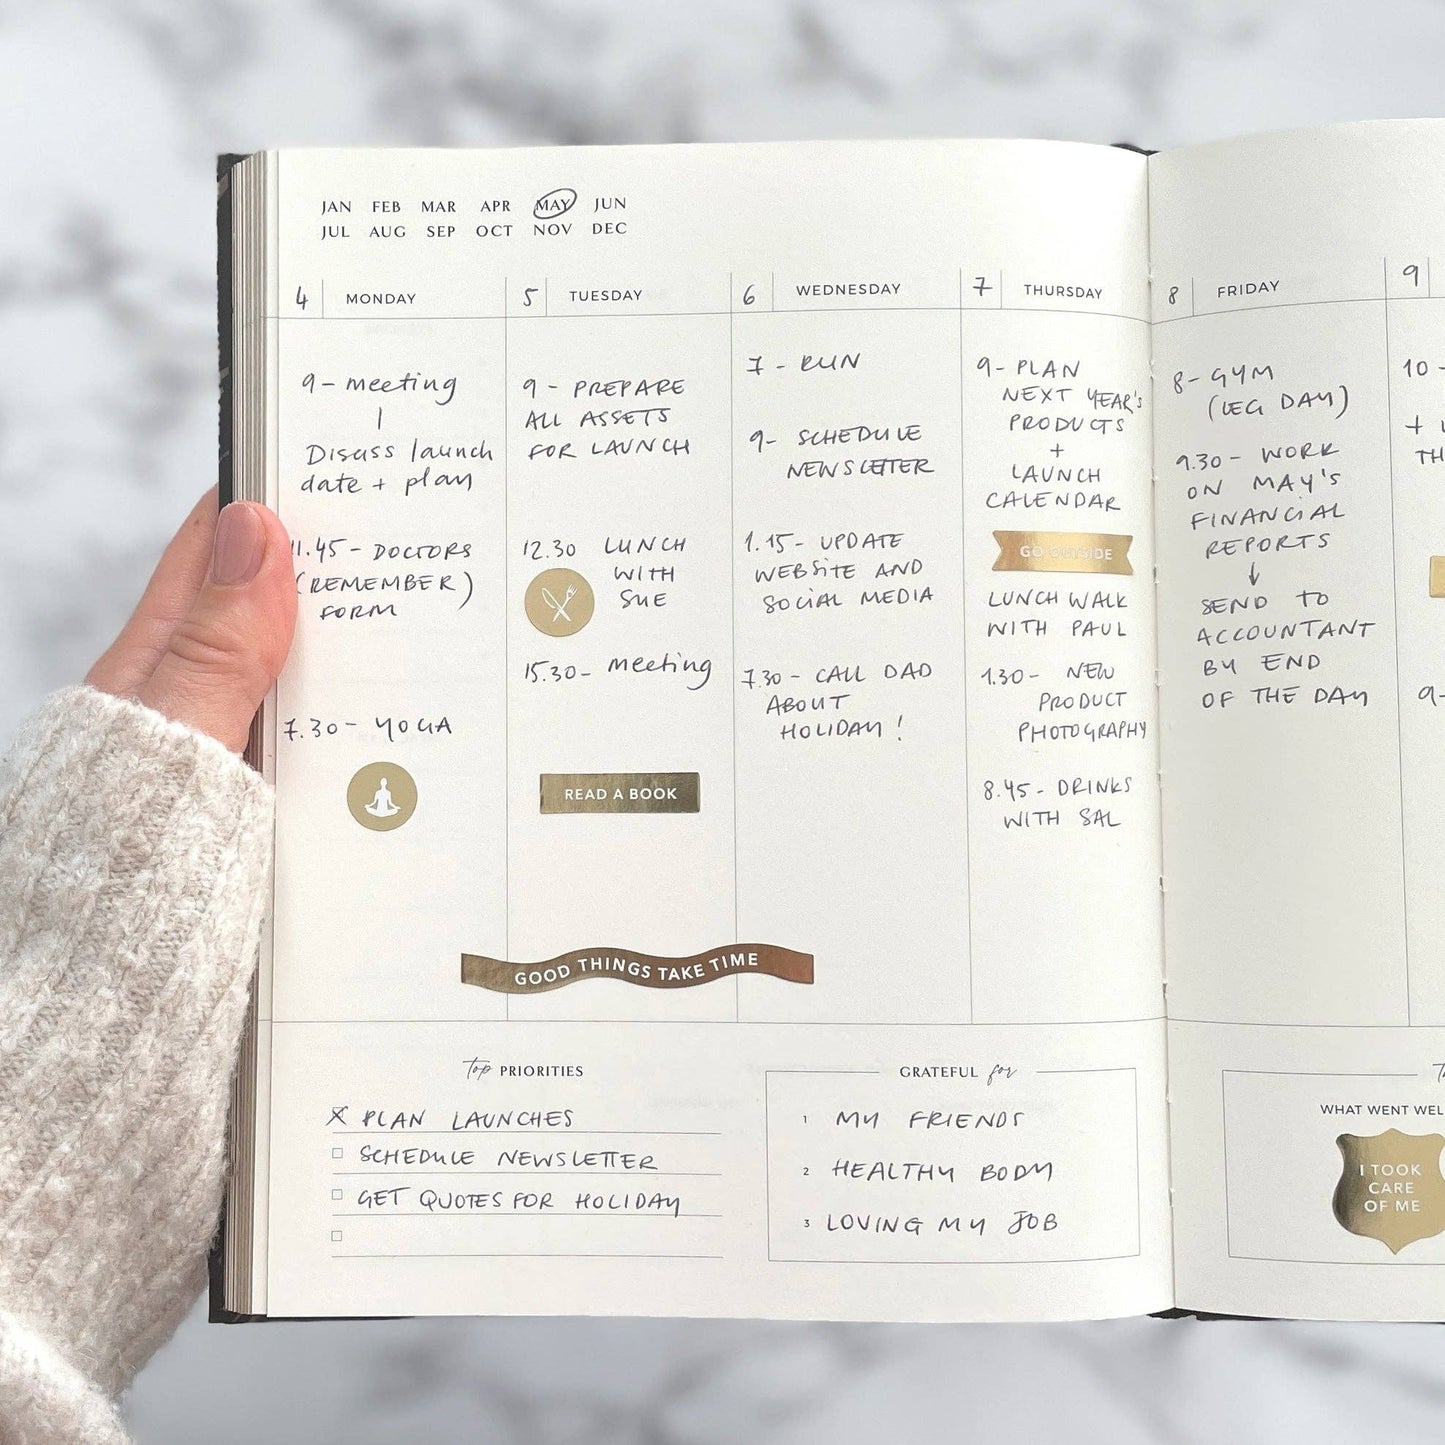 JAN FEB MAR APR MAY JUN
JUL AUG SEP OCT NOV DEC
4 MONDAY
9 - meeting
Discuss launch
date + plan
11.45 - DOCTORS
(REMEMBER)
FORM
7.30 - YOGA
5 TUESDAY
9 - PREPARE
ALL ASSETS
FOR LAUNCH
12.30 LUNCH
WITH
SUE
15.30 - meeting
READ A BOOK
6 WEDNESDAY
7 - RUN
9 - SCHEDULE
NEWSLETTER
1.15 - UPDATE
WEBSITE AND
SOCIAL MEDIA
7.30 - CALL DAD
ABOUT
HOLIDAY!
GOOD THINGS TAKE TIME
7 THURSDAY
9 - PLAN
NEXT YEAR'S
PRODUCTS
+
LAUNCH
CALENDAR
GO OUTSIDE
LUNCH WALK
WITH PAUL
1.30 - NEW
PRODUCT
PHOTOGRAPHY
8.45 - DRINKS
WITH SAL
8 FRIDAY
8 - GYM
(LEG DAY)
9.30 - WORK
ON MAY'S
FINANCIAL
REPORTS
↓
SEND TO
ACCOUNTANT
BY END
OF THE DAY
9
10 -
+
TH
9 -
top PRIORITIES
PLAN LAUNCHES
SCHEDULE NEWSLETTER
GET QUOTES FOR HOLIDAY
GRATEFUL for
1 MY FRIENDS
2 HEALTHY BODY
3 LOVING MY JOB
WHAT WENT WEL
I TOOK
CARE
OF ME